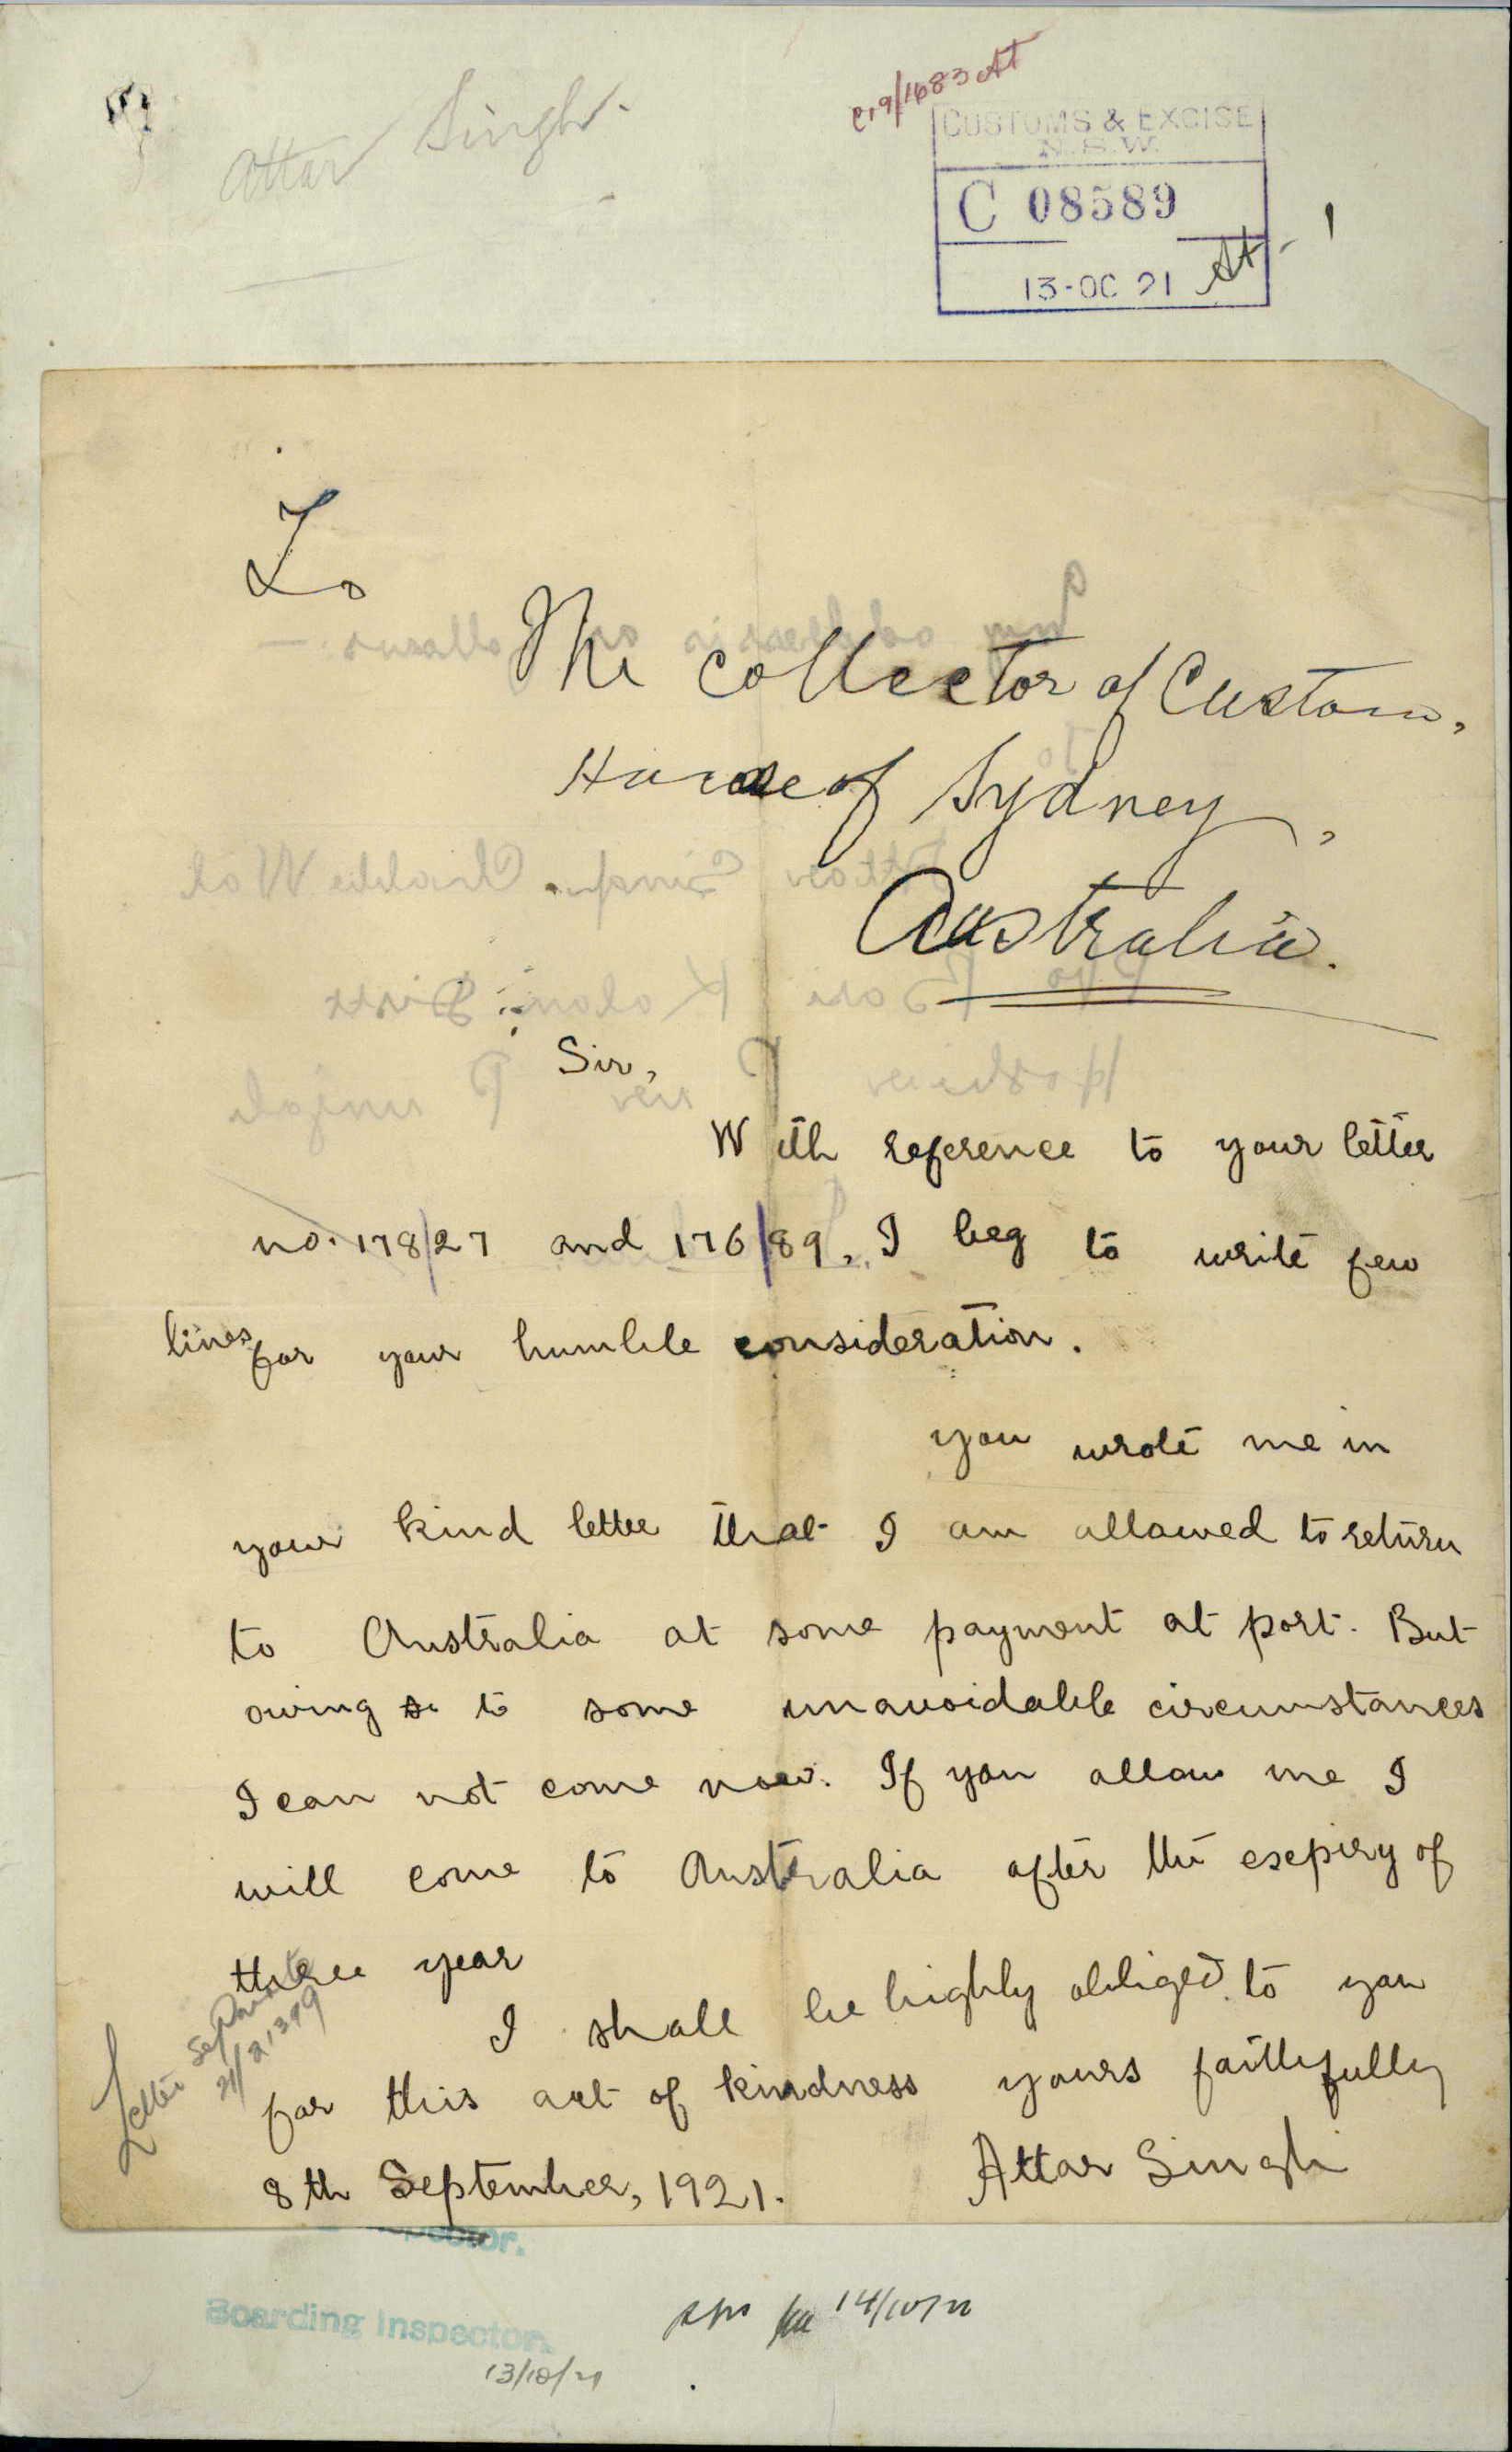 Attar Singh.
C19/1683 At
CUSTOMS & EXCISE
N.S.W.
C 08589
13-OC 21 At - 1
To
The Collector of Custom,
House of Sydney,
Australia.
Sir,
With reference to your letter
no. 178/27 and 176/89, I beg to write few
lines for your humble consideration.
you wrote me in
your kind letter that I am allowed to return
to Australia at some payment at port. But
owing to some unavoidable circumstances
I can not come now. If you allow me I
will come to Australia after the expiry of
three year
I shall be highly obliged to you
for this act of kindness yours faithfully
8th September, 1921. Attar Singh
Letter
Boarding Inspector.
13/10/21